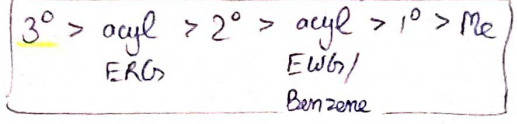 3° > acyl > 2° > acyl > 1° > Me
ERG EWG/
Benzene